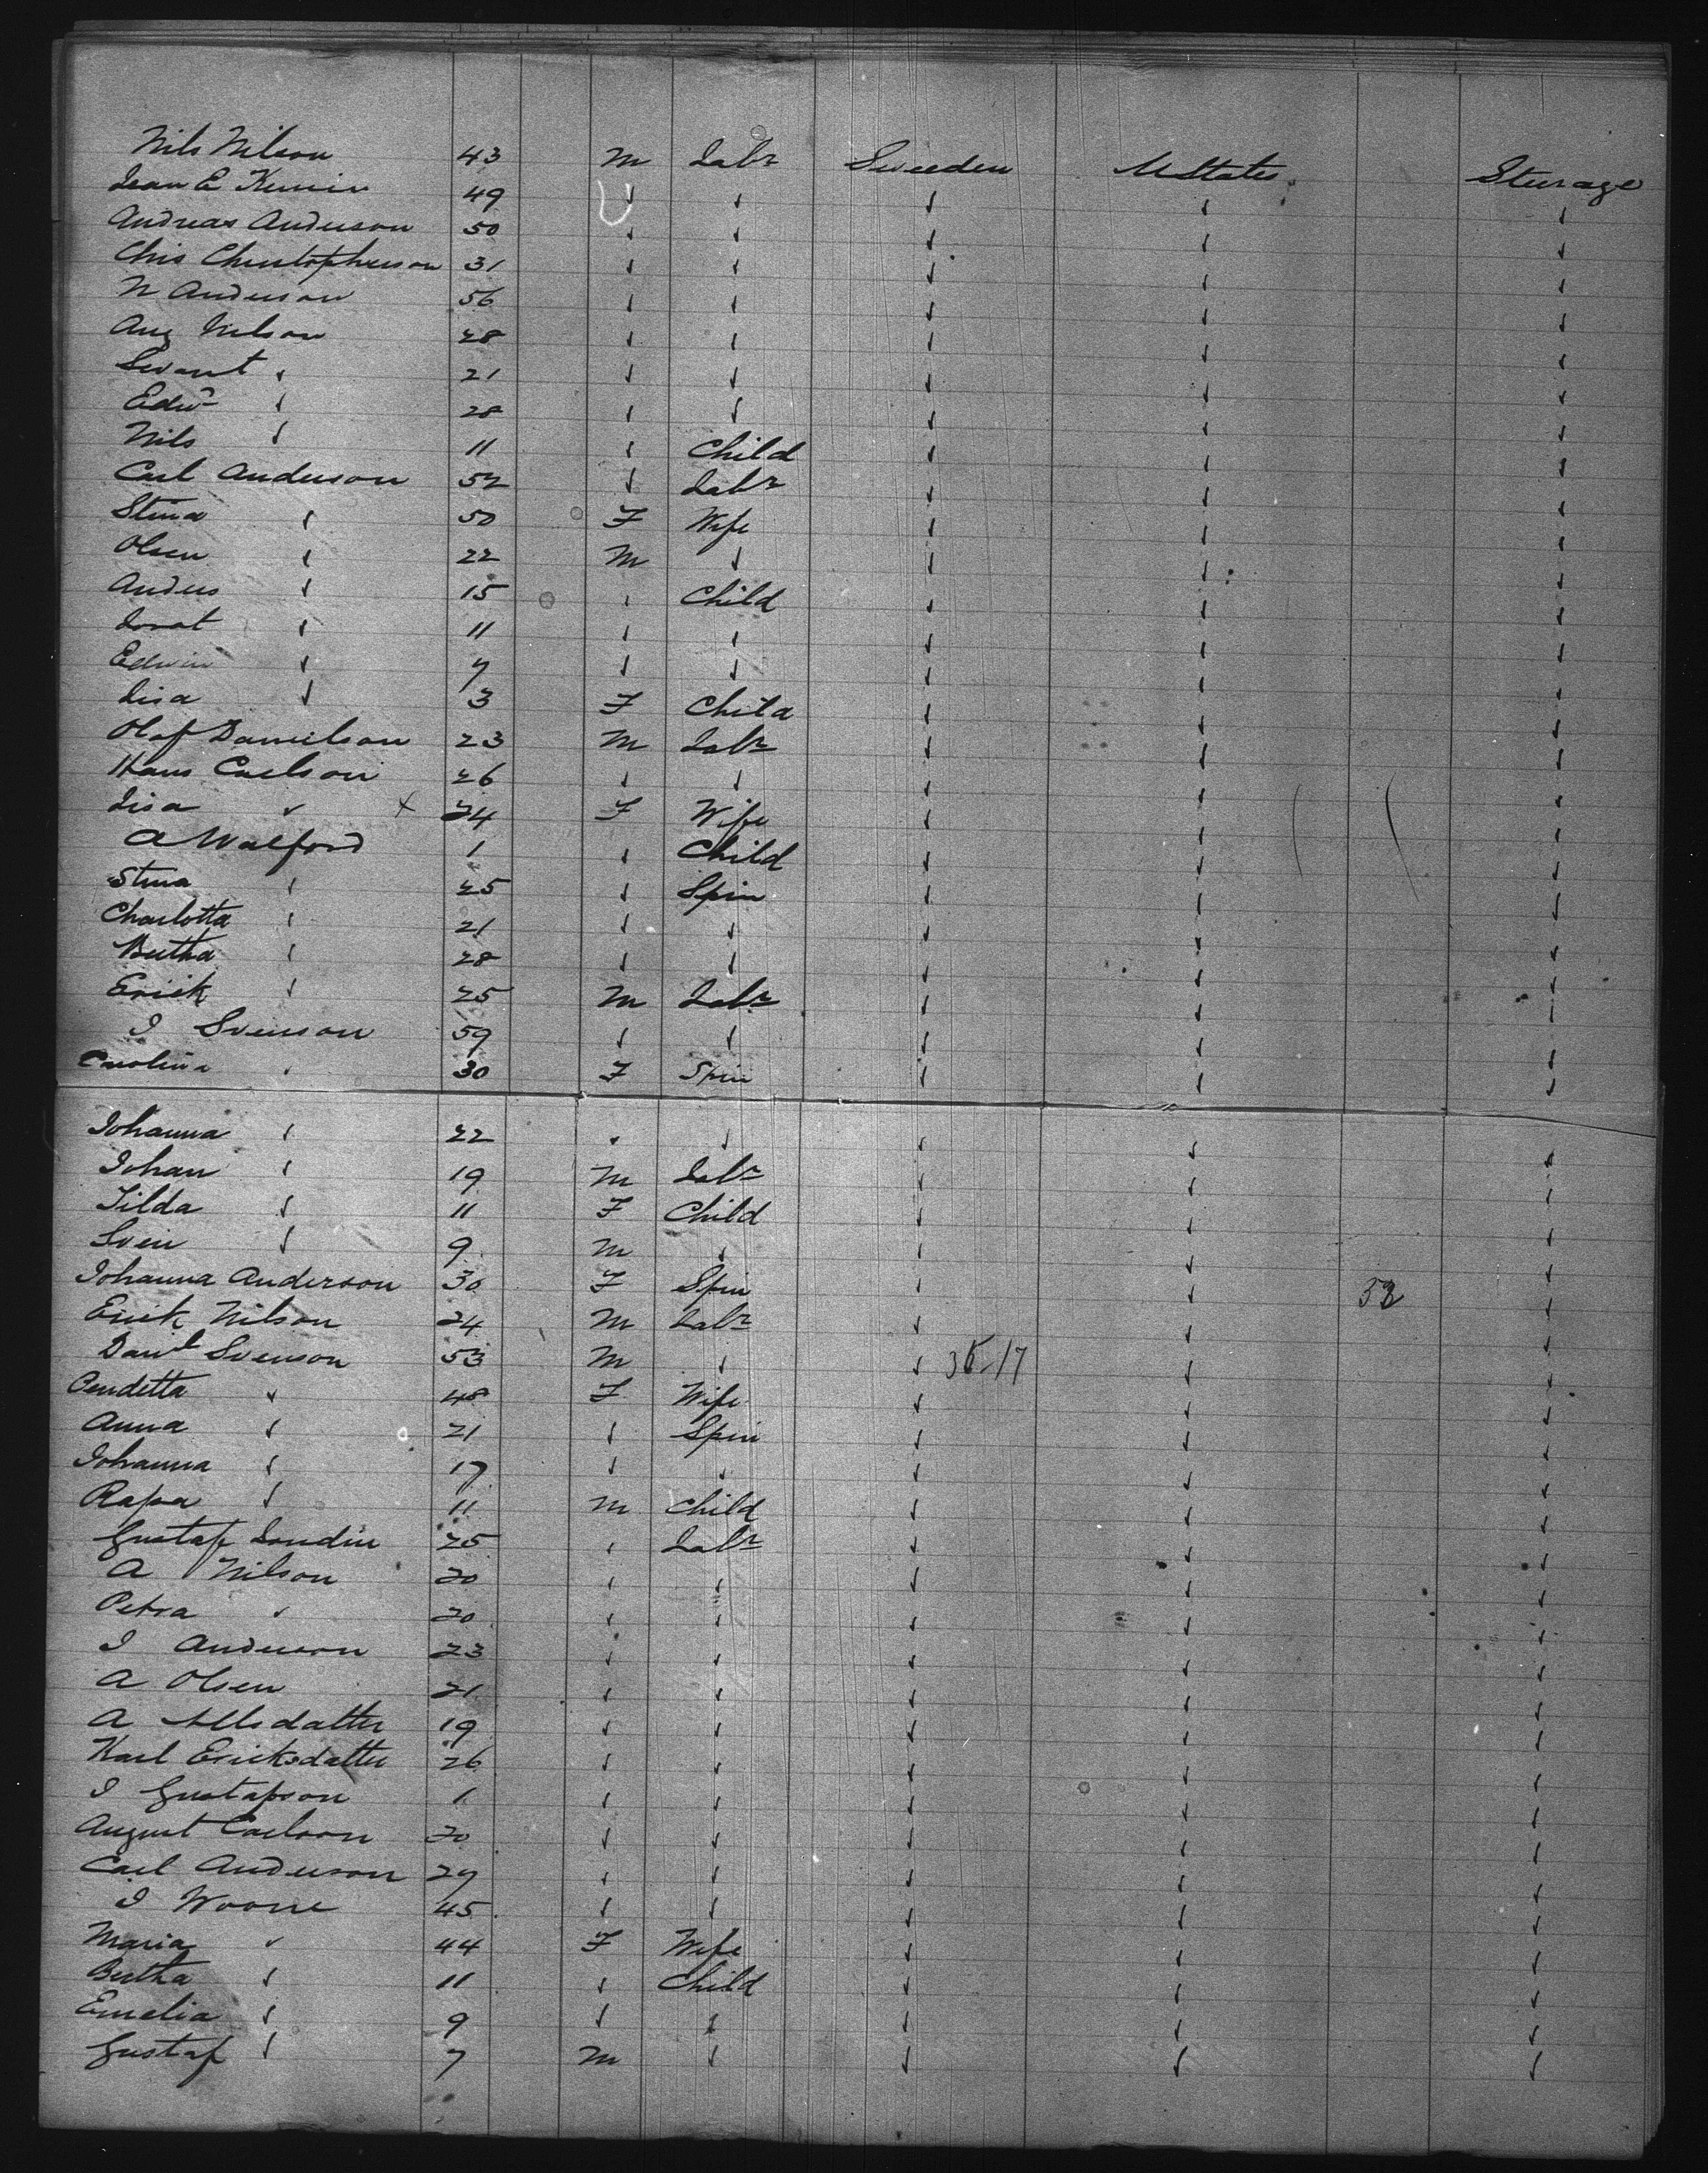 Nils Nilson 43 m Labr Sweeden UStates Steerage
Jean E 49 ✓ ✓ ✓ ✓ ✓
Andreas Anderson 50 ✓ ✓ ✓ ✓ ✓
Chris Christopherson 31 ✓ ✓ ✓ ✓ ✓
N Anderson 56 ✓ ✓ ✓ ✓ ✓
Aug Nilson 28 ✓ ✓ ✓ ✓ ✓
Swant ✓ 21 ✓ ✓ ✓ ✓ ✓
Edwd ✓ 28 ✓ ✓ ✓ ✓ ✓
Nils ✓ 11 ✓ Child ✓ ✓ ✓
Carl Anderson 52 ✓ Labr ✓ ✓ ✓
Stina ✓ 50 F Wife ✓ ✓ ✓
Olsen ✓ 22 M ✓ ✓ ✓ ✓
Anders ✓ 15 ✓ Child ✓ ✓ ✓
✓ 11 ✓ ✓ ✓ ✓ ✓
Edwin ✓ 7 ✓ ✓ ✓ ✓ ✓
Lisa ✓ 3 F Child ✓ ✓ ✓
Olof Danielson 23 M Labr ✓ ✓ ✓
Hans Carlson 26 ✓ ✓ ✓ ✓ ✓
Lisa ✓ x 24 F Wife ✓ ✓ ✓
A Walford 1 ✓ Child ✓ ✓ ✓
Stina ✓ 25 ✓ Spin ✓ ✓ ✓
Charlotta ✓ 21 ✓ ✓ ✓ ✓ ✓
Bertha ✓ 28 ✓ ✓ ✓ ✓ ✓
Erick ✓ 25 M Labr ✓ ✓ ✓
J Svenson 59 ✓ ✓ ✓ ✓ ✓
Carolina ✓ 30 F Spin ✓ ✓ ✓
Johanna ✓ 22 ✓ ✓ ✓ ✓ ✓
Johan ✓ 19 M Labr ✓ ✓ ✓
Tilda ✓ 11 F Child ✓ ✓ ✓
Sven ✓ 9 M ✓ ✓ ✓ ✓
Johanna Anderson 30 F Spin ✓ ✓ ✓
Erick Nilson 24 M Labr ✓ ✓ ✓
Danl Svenson 53 M ✓ ✓ ✓ ✓
Bendetta ✓ 48 F Wife ✓ ✓ ✓
Anna ✓ 21 ✓ Spin ✓ ✓ ✓
Johanna ✓ 17 ✓ ✓ ✓ ✓ ✓
✓ 11 M Child ✓ ✓ ✓
Gustaf 25 ✓ Labr ✓ ✓ ✓
A Nilson 20 ✓ ✓ ✓ ✓ ✓
Petra ✓ 20 ✓ ✓ ✓ ✓ ✓
J Anderson 23 ✓ ✓ ✓ ✓ ✓
A Olsen 21 ✓ ✓ ✓ ✓ ✓
A 19 ✓ ✓ ✓ ✓ ✓
Karl Ericksdatter 26 ✓ ✓ ✓ ✓ ✓
J Gustafson 1 ✓ ✓ ✓ ✓ ✓
August Carlson 20 ✓ ✓ ✓ ✓ ✓
Carl Anderson 27 ✓ ✓ ✓ ✓ ✓
J Woone 45 ✓ ✓ ✓ ✓ ✓
Maria ✓ 44 F Wife ✓ ✓ ✓
Bertha ✓ 11 ✓ Child ✓ ✓ ✓
Emelia ✓ 9 ✓ ✓ ✓ ✓ ✓
Gustaf ✓ 7 M ✓ ✓ ✓ ✓